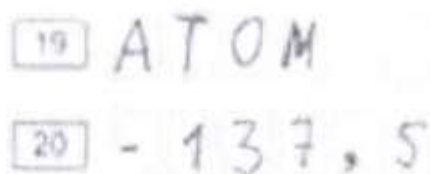 19 ATOM
20 -137,5